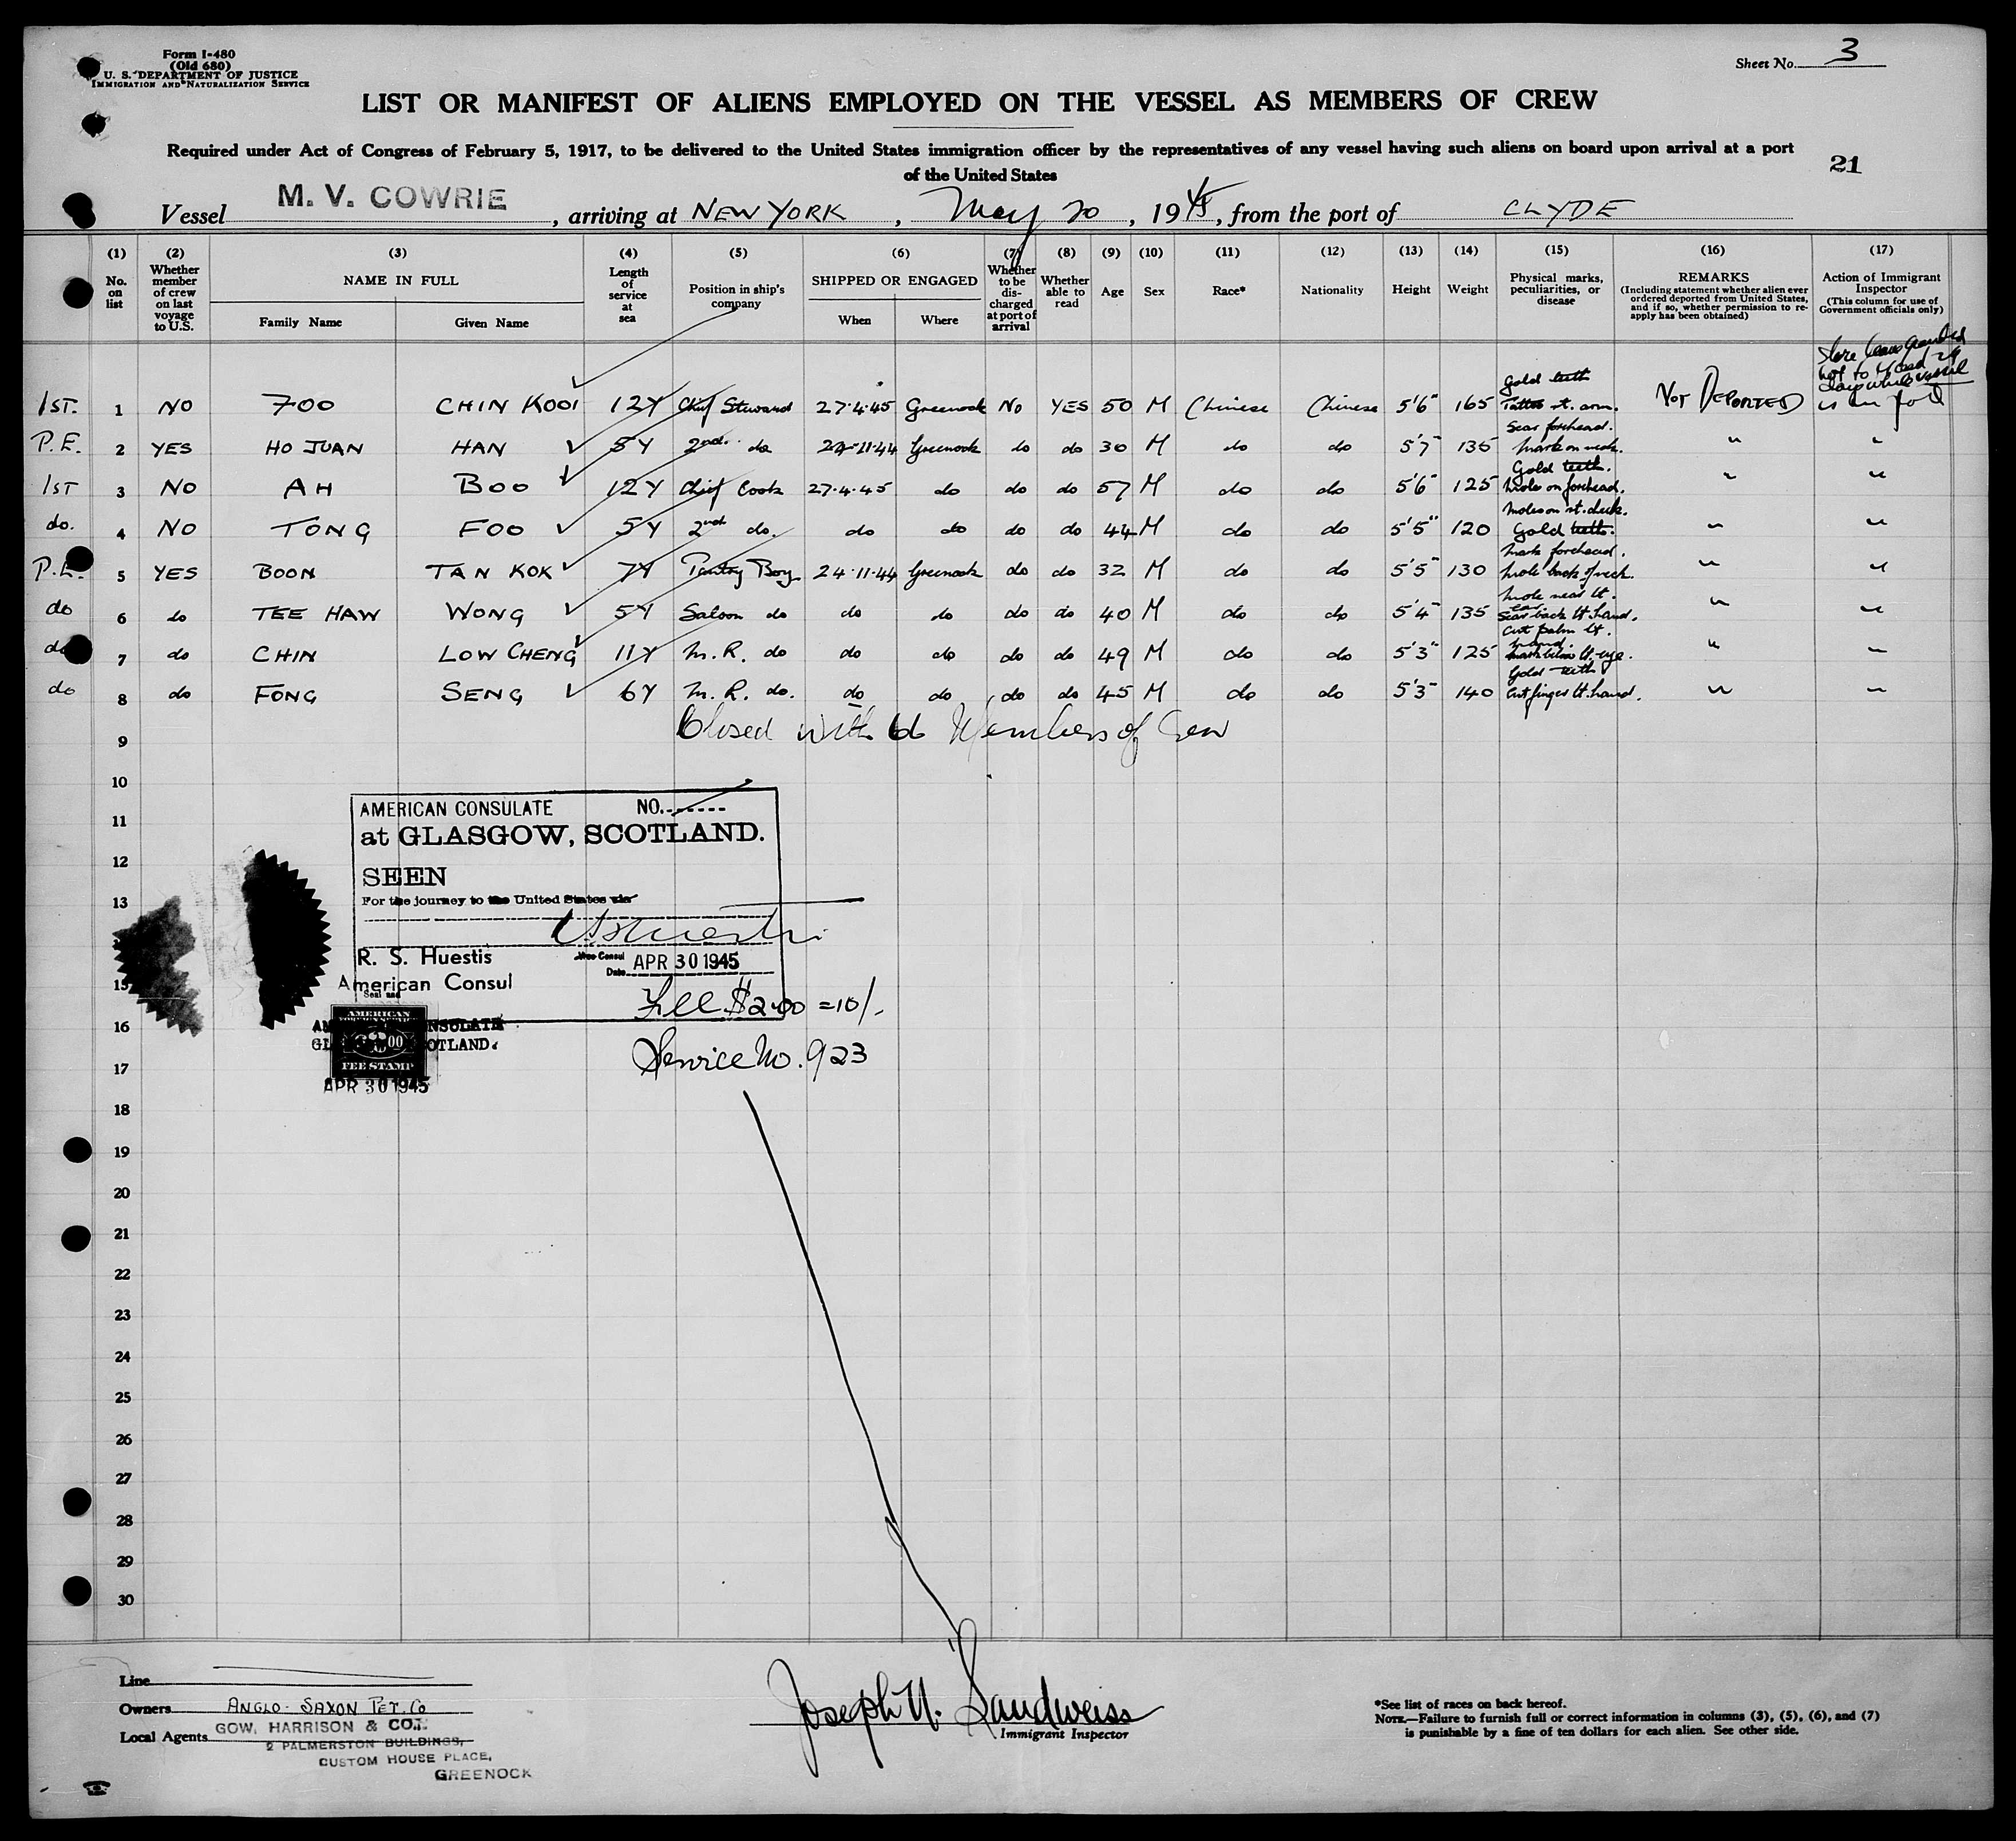 Form I-480
(Old 680)
U. S. DEPARTMENT OF JUSTICE
IMMIGRATION AND NATURALIZATION SERVICE
Sheet No. 3
LIST OR MANIFEST OF ALIENS EMPLOYED ON THE VESSEL AS MEMBERS OF CREW
Required under Act of Congress of February 5, 1917, to be delivered to the United States immigration officer by the representatives of any vessel having such aliens on board upon arrival at a port
of the United States
21
Vessel M. V. COWRIE, arriving at NEW YORK, May 20, 1945, from the port of CLYDE
(1) No. on list (2) Whether member of crew on last voyage to U.S. (3) NAME IN FULL Family Name Given Name (4) Length of service at sea (5) Position in ship's company (6) SHIPPED OR ENGAGED When Where (7) Whether to be discharged at port of arrival (8) Whether able to read (9) Age (10) Sex (11) Race* (12) Nationality (13) Height (14) Weight (15) Physical marks, peculiarities, or disease (16) REMARKS (Including statement whether alien ever ordered deported from United States, and if so, whether permission to re-apply has been obtained) (17) Action of Immigrant Inspector (This column for use of Government officials only)
Shore leave granted not to exceed 29 days while vessel is in port
1ST. 1 NO FOO CHIN KOOI 12Y Chief Steward 27.4.45 Greenock No YES 50 M Chinese Chinese 5'6" 165 Gold teeth Tattoo rt. arm. NOT DEPORTED
P.E. 2 YES HO JUAN HAN 5Y 2nd. do 24-11-44 Greenock do do 30 M do do 5'7" 135 Scar forehead. Mark on neck. " "
1ST 3 NO AH BOO 12Y Chief Cook 27.4.45 do do do 57 M do do 5'6" 125 Gold teeth. Mole on forehead. " "
do. 4 NO TONG FOO 5Y 2nd do. do do do do 44 M do do 5'5" 120 Moles on rt. cheek. Gold teeth. " "
P.E. 5 YES BOON TAN KOK 7Y Pantry Boy 24.11.44 Greenock do do 32 M do do 5'5" 130 Mark forehead. Mole back of neck. " "
do 6 do TEE HAW WONG 5Y Saloon do do do do do 40 M do do 5'4" 135 Mole near lt. ear. Scar back lt. hand. " "
do 7 do CHIN LOW CHENG 11Y M.R. do do do do do 49 M do do 5'3" 125 Cut palm lt. hand. Mark below lt. eye. " "
do 8 do FONG SENG 6Y M.R. do. do do do do 45 M do do 5'3" 140 Gold teeth Cut finger lt. hand. " "
9 Closed with 66 Members of Crew
10
11
12
13
15
16
17
18
19
20
21
22
23
24
25
26
27
28
29
30
AMERICAN CONSULATE NO.
at GLASGOW, SCOTLAND.
SEEN
For the journey to the United States via
R. S. Huestis
American Consul
Vice Consul
Date APR 30 1945
Seal and
Fee $2.00 = 10/.
Service No. 923
AMERICAN
FEE STAMP
APR 30 1945
Line
Owners ANGLO-SAXON PET. CO
Local Agents GOW, HARRISON & CO.
2 PALMERSTON BUILDINGS,
CUSTOM HOUSE PLACE,
GREENOCK
Joseph N. Sandweiss
Immigrant Inspector
*See list of races on back hereof.
NOTE.—Failure to furnish full or correct information in columns (3), (5), (6), and (7)
is punishable by a fine of ten dollars for each alien. See other side.